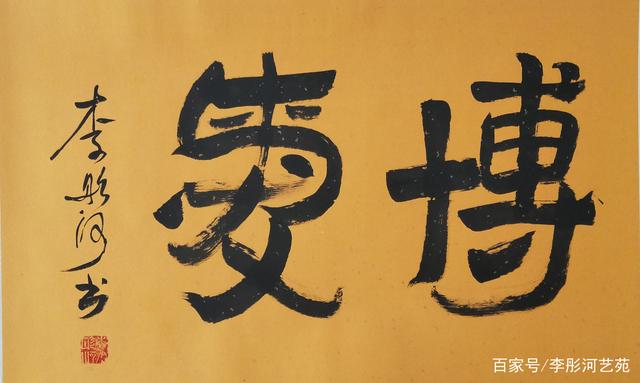 博愛
李彤河书
百家号/李彤河艺苑